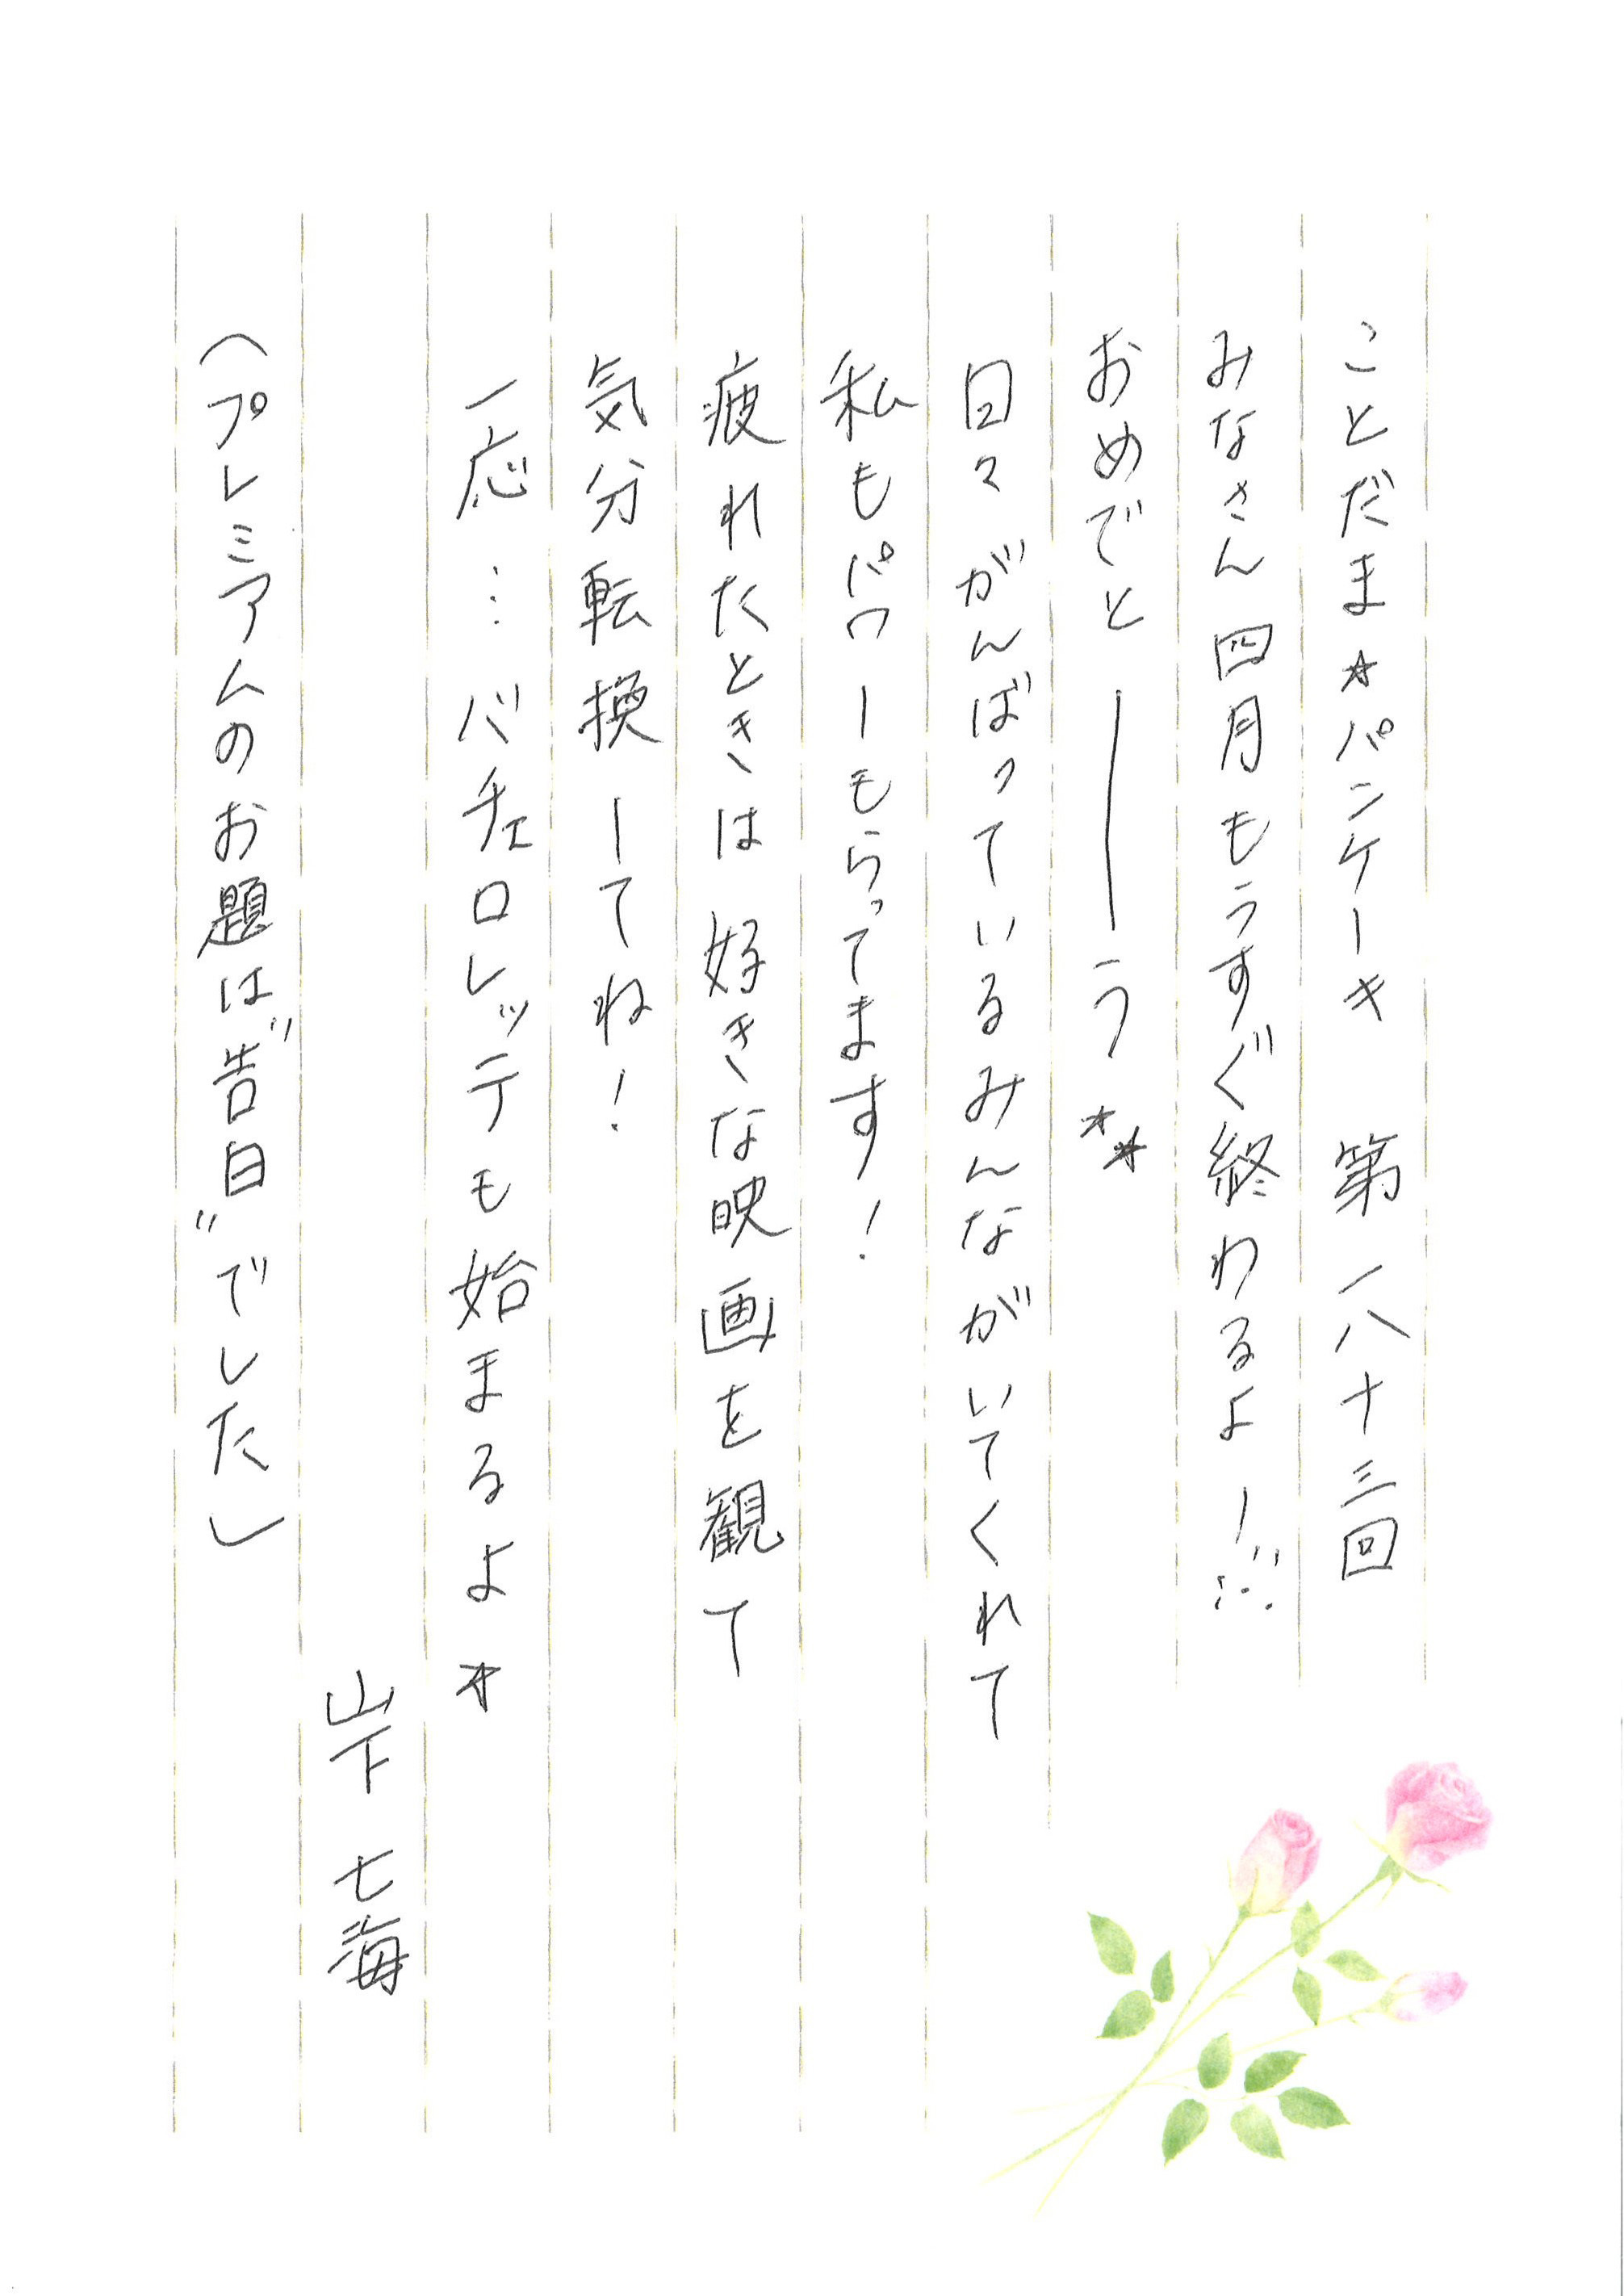 ことだま☆パンケーキ　第一八十三回
みなさん四月もうすぐ終わるよー!!
おめでとーう☆☆
日々がんばっているみんながいてくれて
私もパワーもらってます！
疲れたときは好きな映画を観て
気分転換してね！
一応…バチェロレッテも始まるよ☆
山下七海
(プレミアムのお題は"告白"でした)